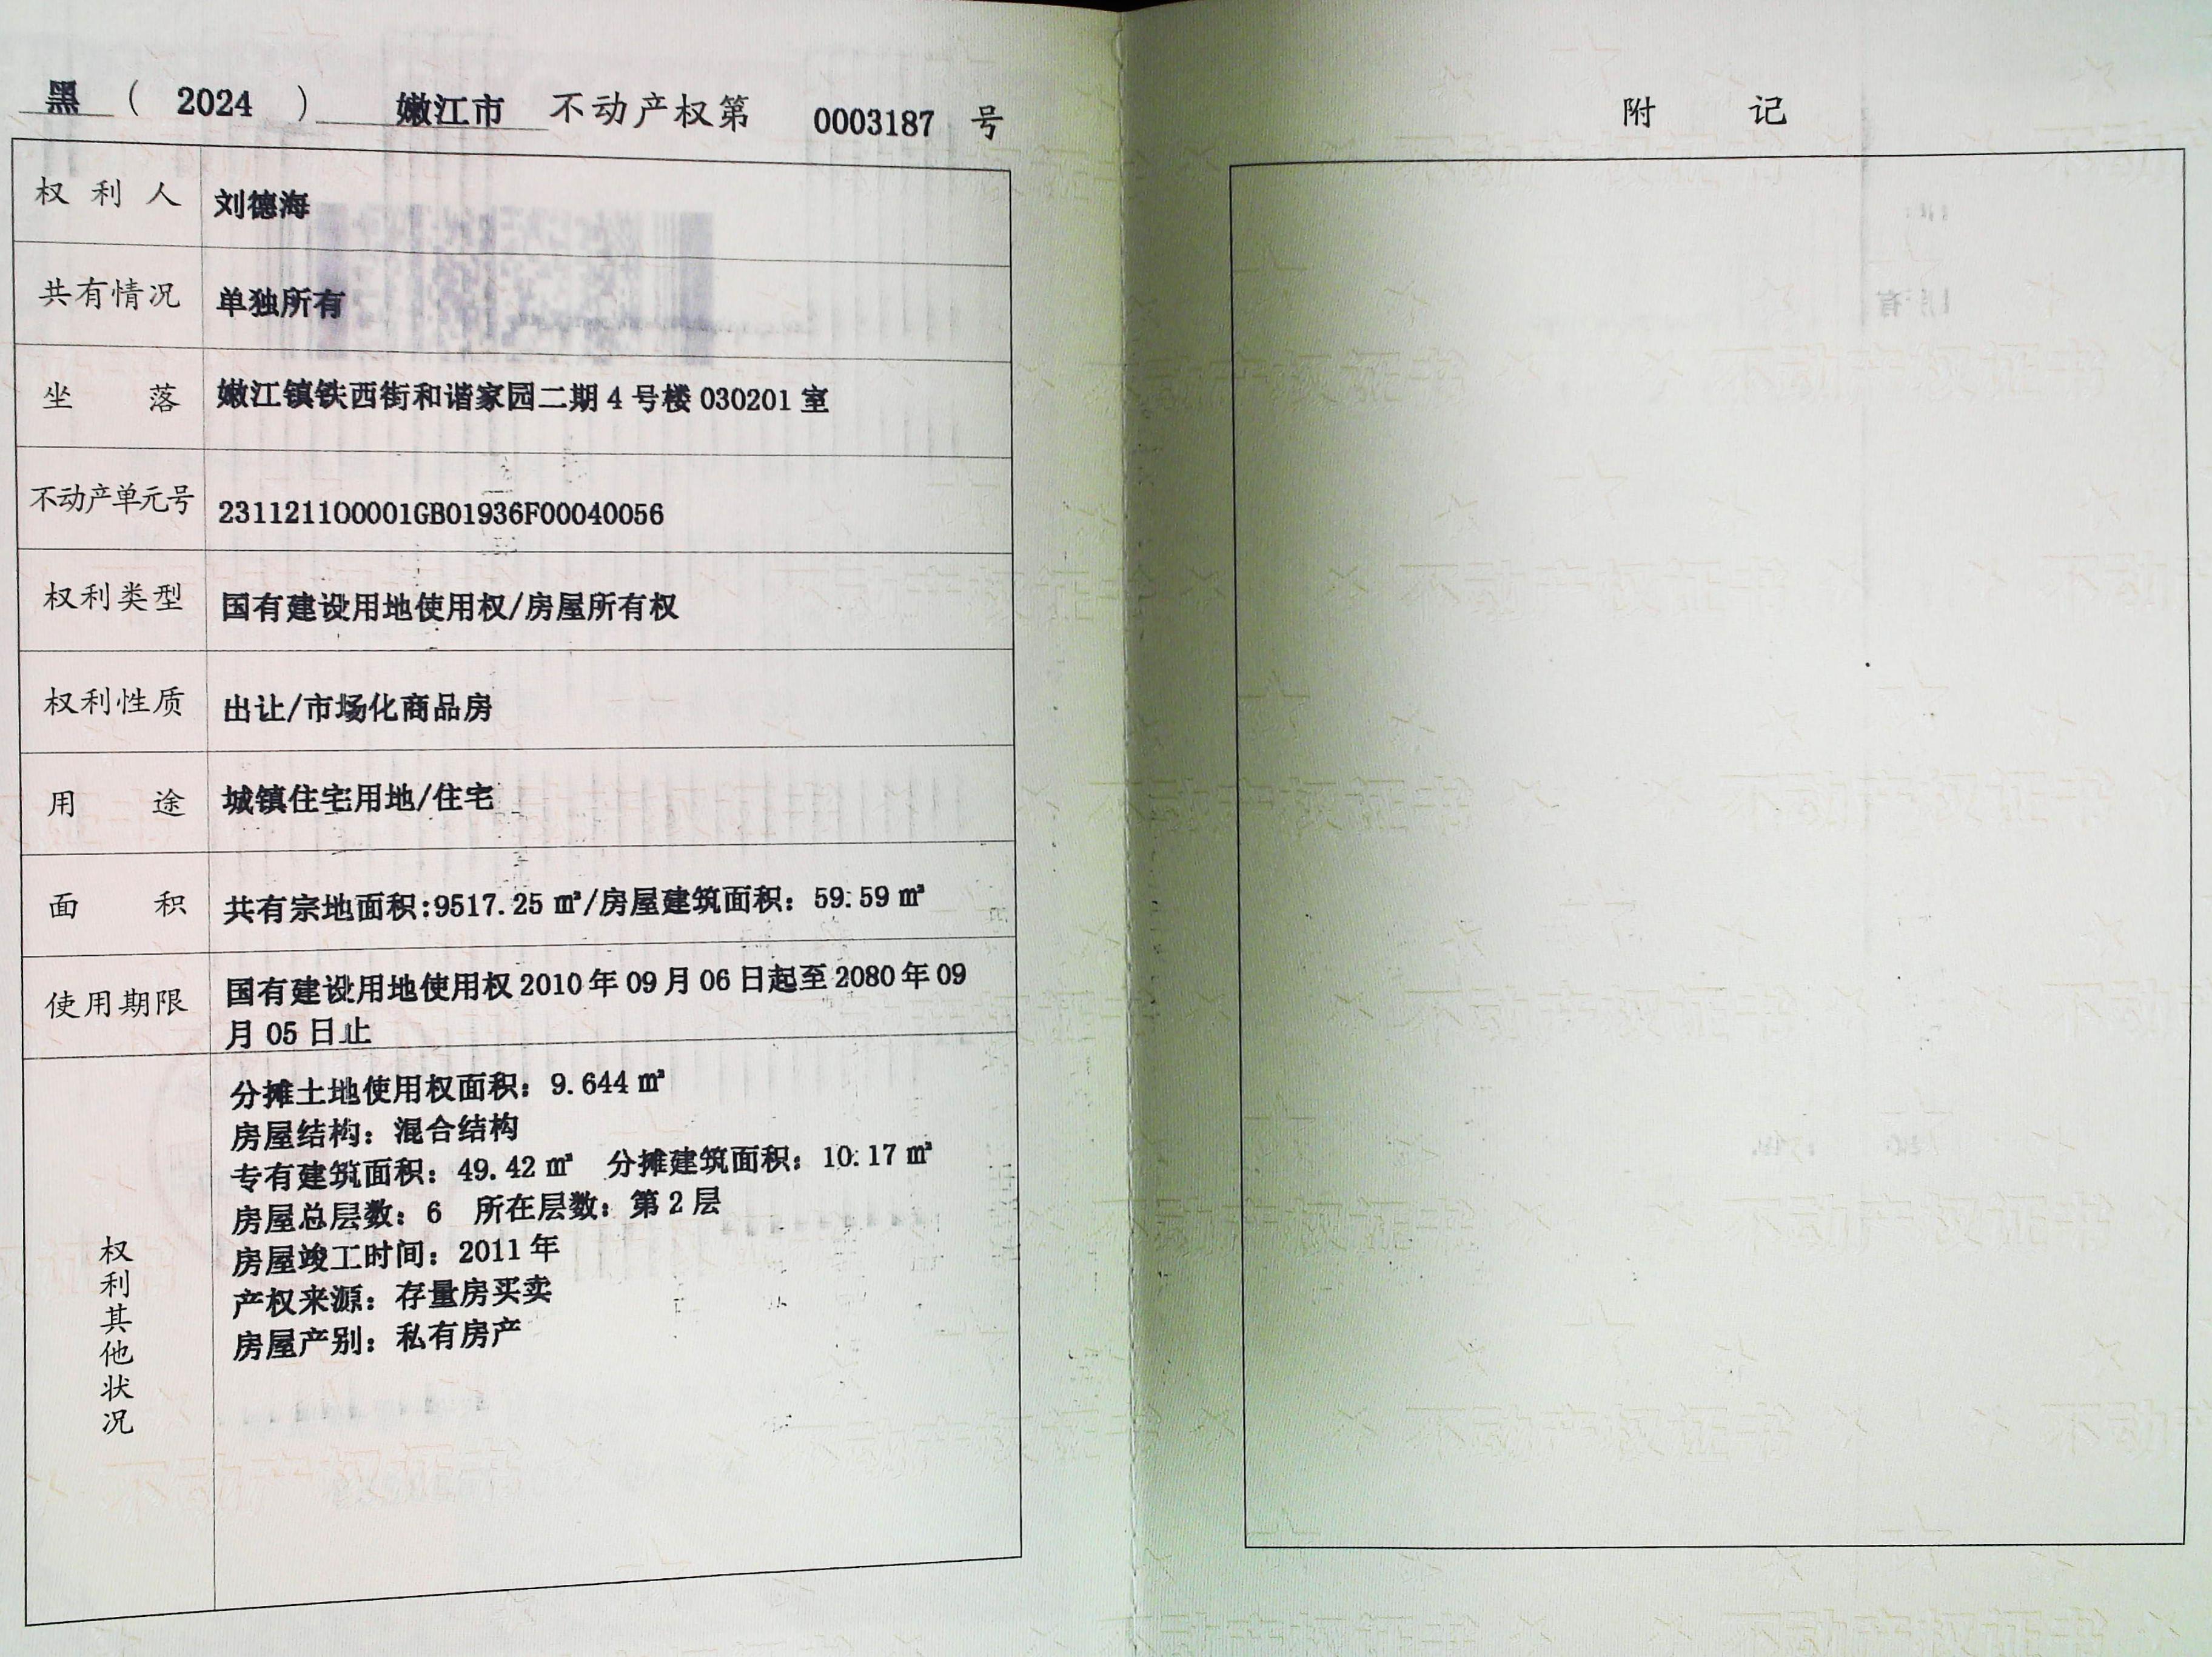 黑 ( 2024 ) 嫩江市 不动产权第 0003187 号
权利人 刘德海
共有情况 单独所有
坐落 嫩江镇铁西街和谐家园二期 4 号楼 030201 室
不动产单元号 231121100001GB01936F00040056
权利类型 国有建设用地使用权/房屋所有权
权利性质 出让/市场化商品房
用途 城镇住宅用地/住宅
面积 共有宗地面积:9517.25 ㎡/房屋建筑面积：59.59 ㎡
使用期限 国有建设用地使用权 2010 年 09 月 06 日起至 2080 年 09
月 05 日止
权利其他状况
分摊土地使用权面积：9.644 ㎡
房屋结构：混合结构
专有建筑面积：49.42 ㎡ 分摊建筑面积：10.17 ㎡
房屋总层数：6 所在层数：第 2 层
房屋竣工时间：2011 年
产权来源：存量房买卖
房屋产别：私有房产
附记